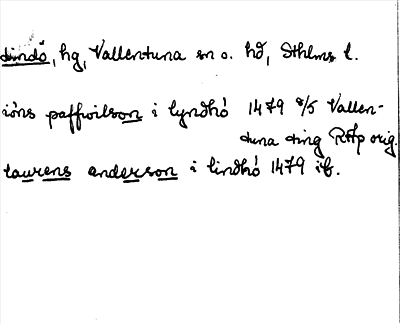 Lindö, hg, Vallentuna sn o. hd, Sthlms l.
ións paffwilson i lyndhó 1479 8/5 Vallen-
tuna ting RAp orig.
laurens anderson i lindhó 1479 ib.